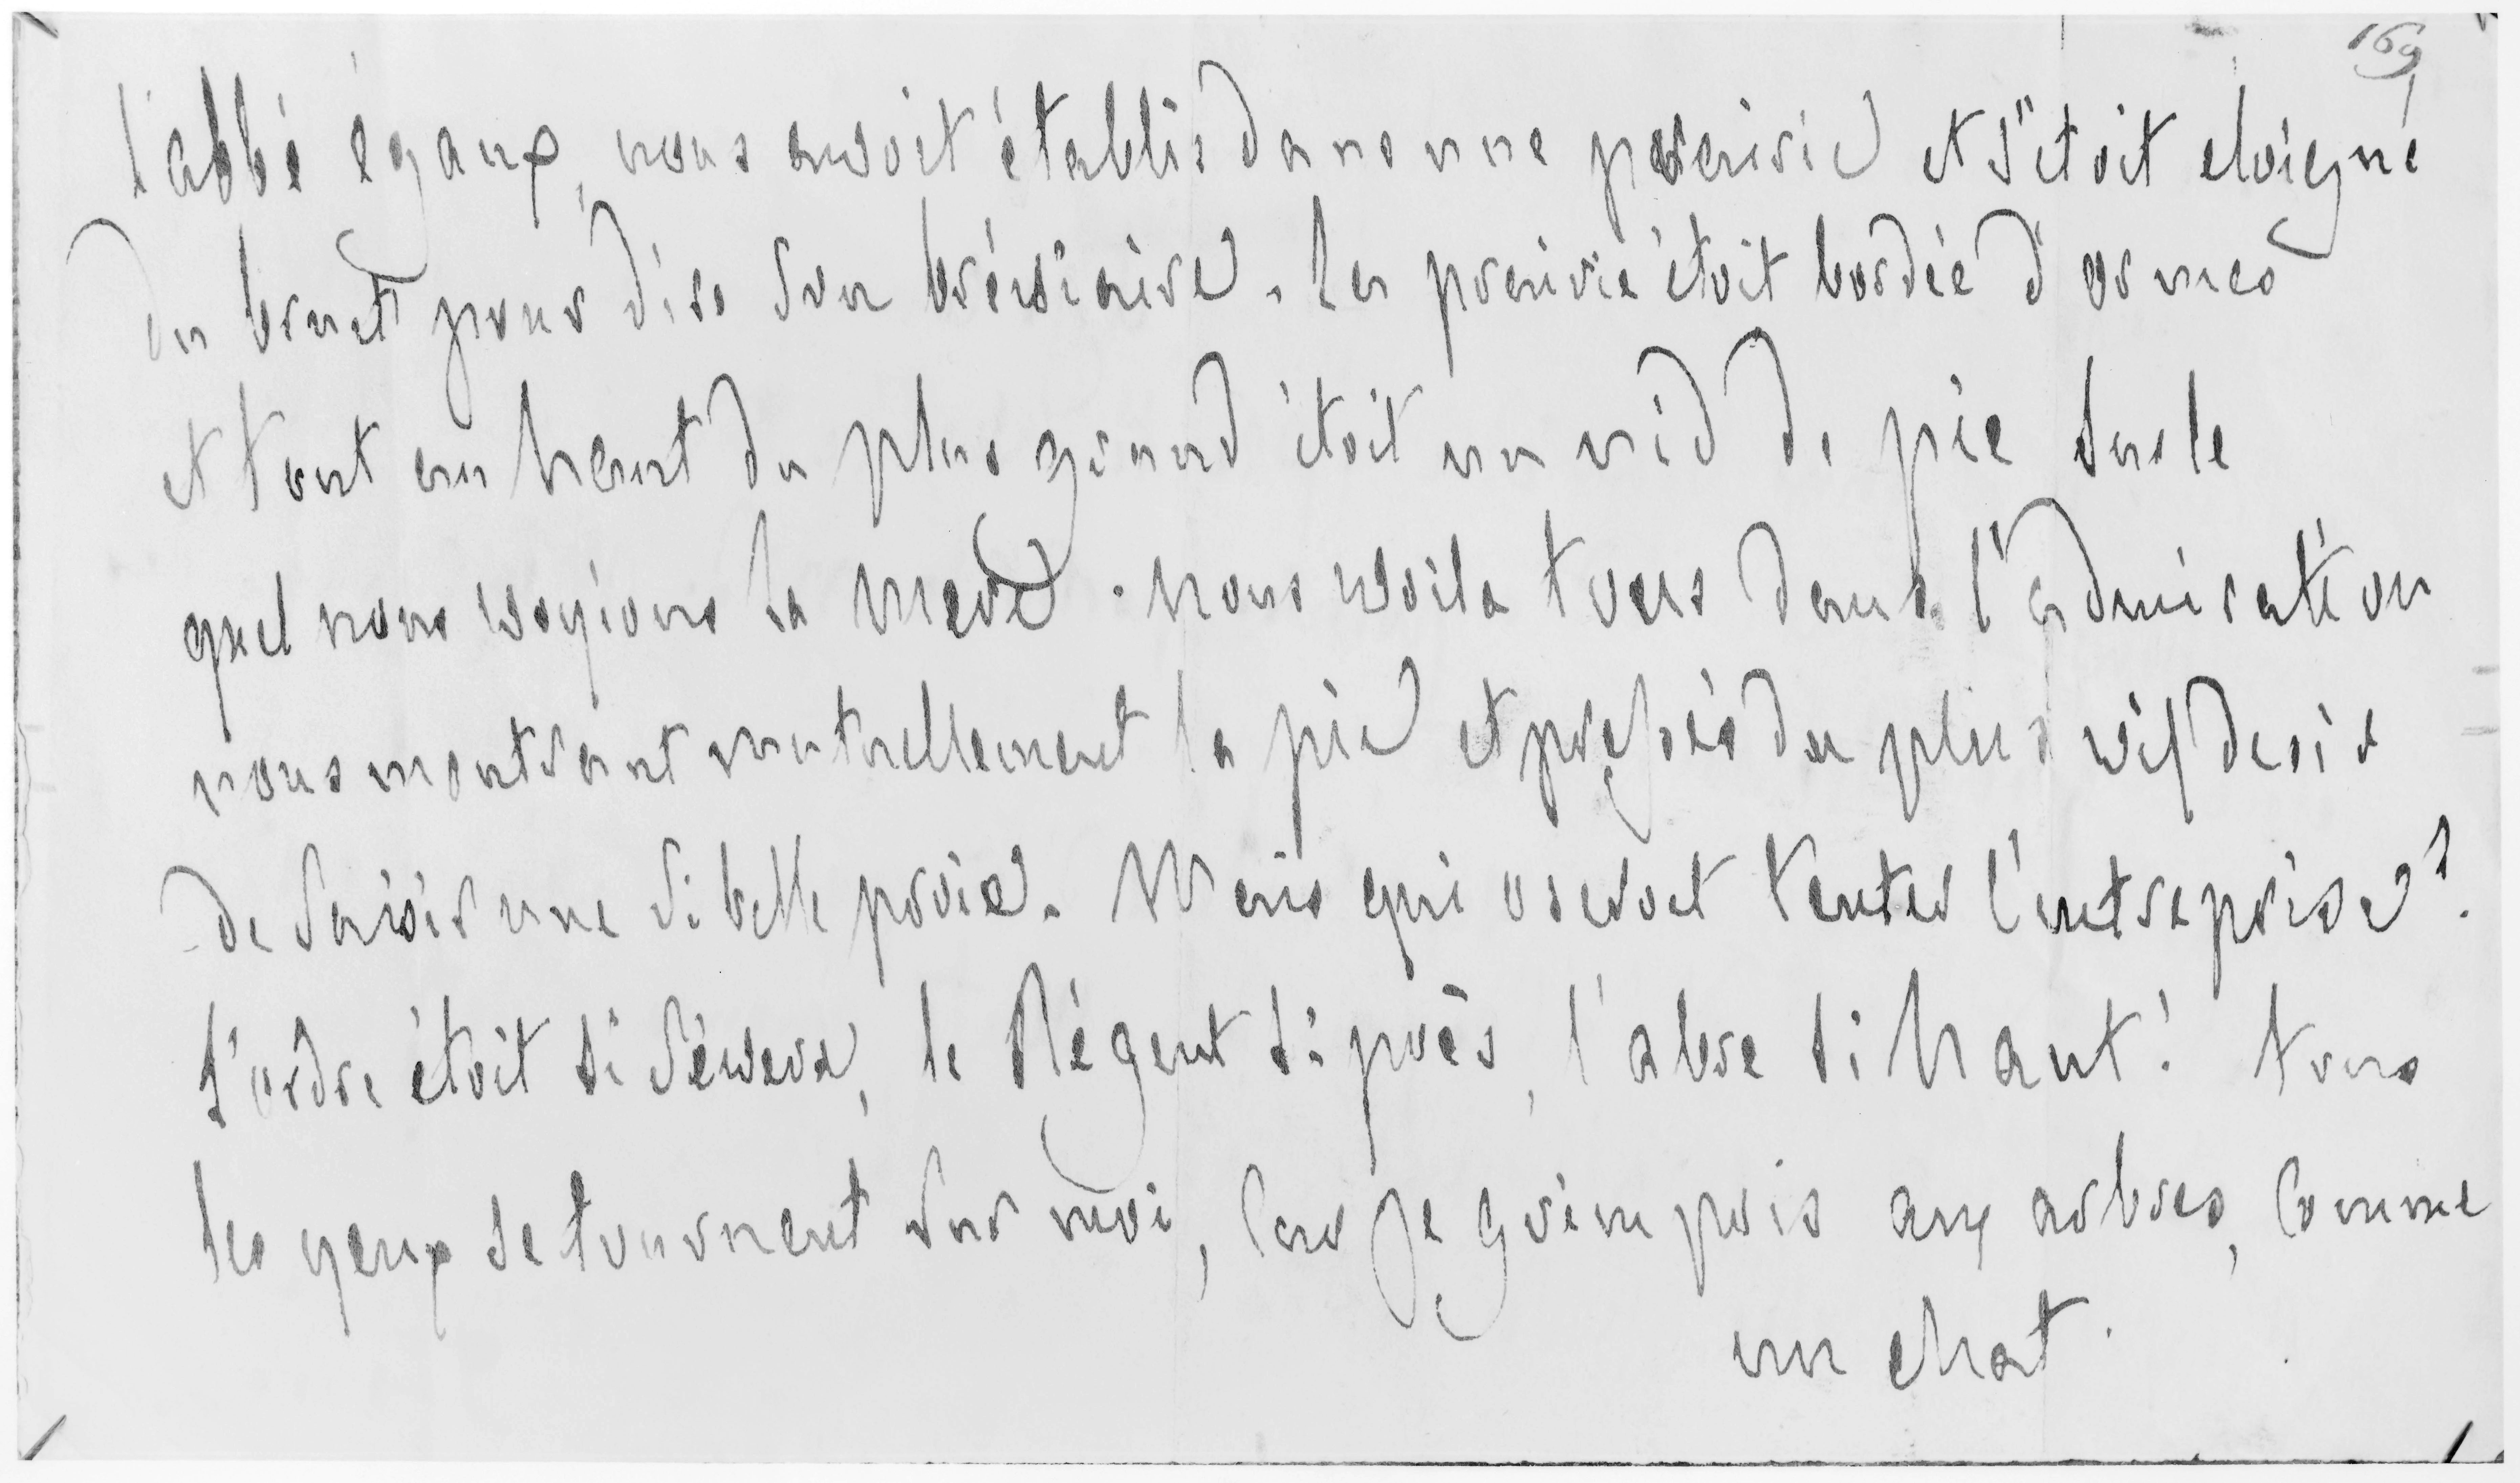 169
l'abbé égaux, nous avoit établis dans une prairie et s'étoit eloigné
du bruit pour dire son bréviaire. La prairie étoit bordée d'ormes
et tout au haut du plus grand étoit un nid de pie sur le
quel nous voyions la mere. Nous voila tous dans l'admiration
nous montrant mutuellement la pie et pressés du plus vif desir
de saisir une si belle proie. Mais qui oseroit tenter l'entreprise?
L'ordre étoit si sévere, le Régent si près, l'abre si haut! tous
les yeux se tournent sur moi, car je grimpois aux arbres, comme
un chat.